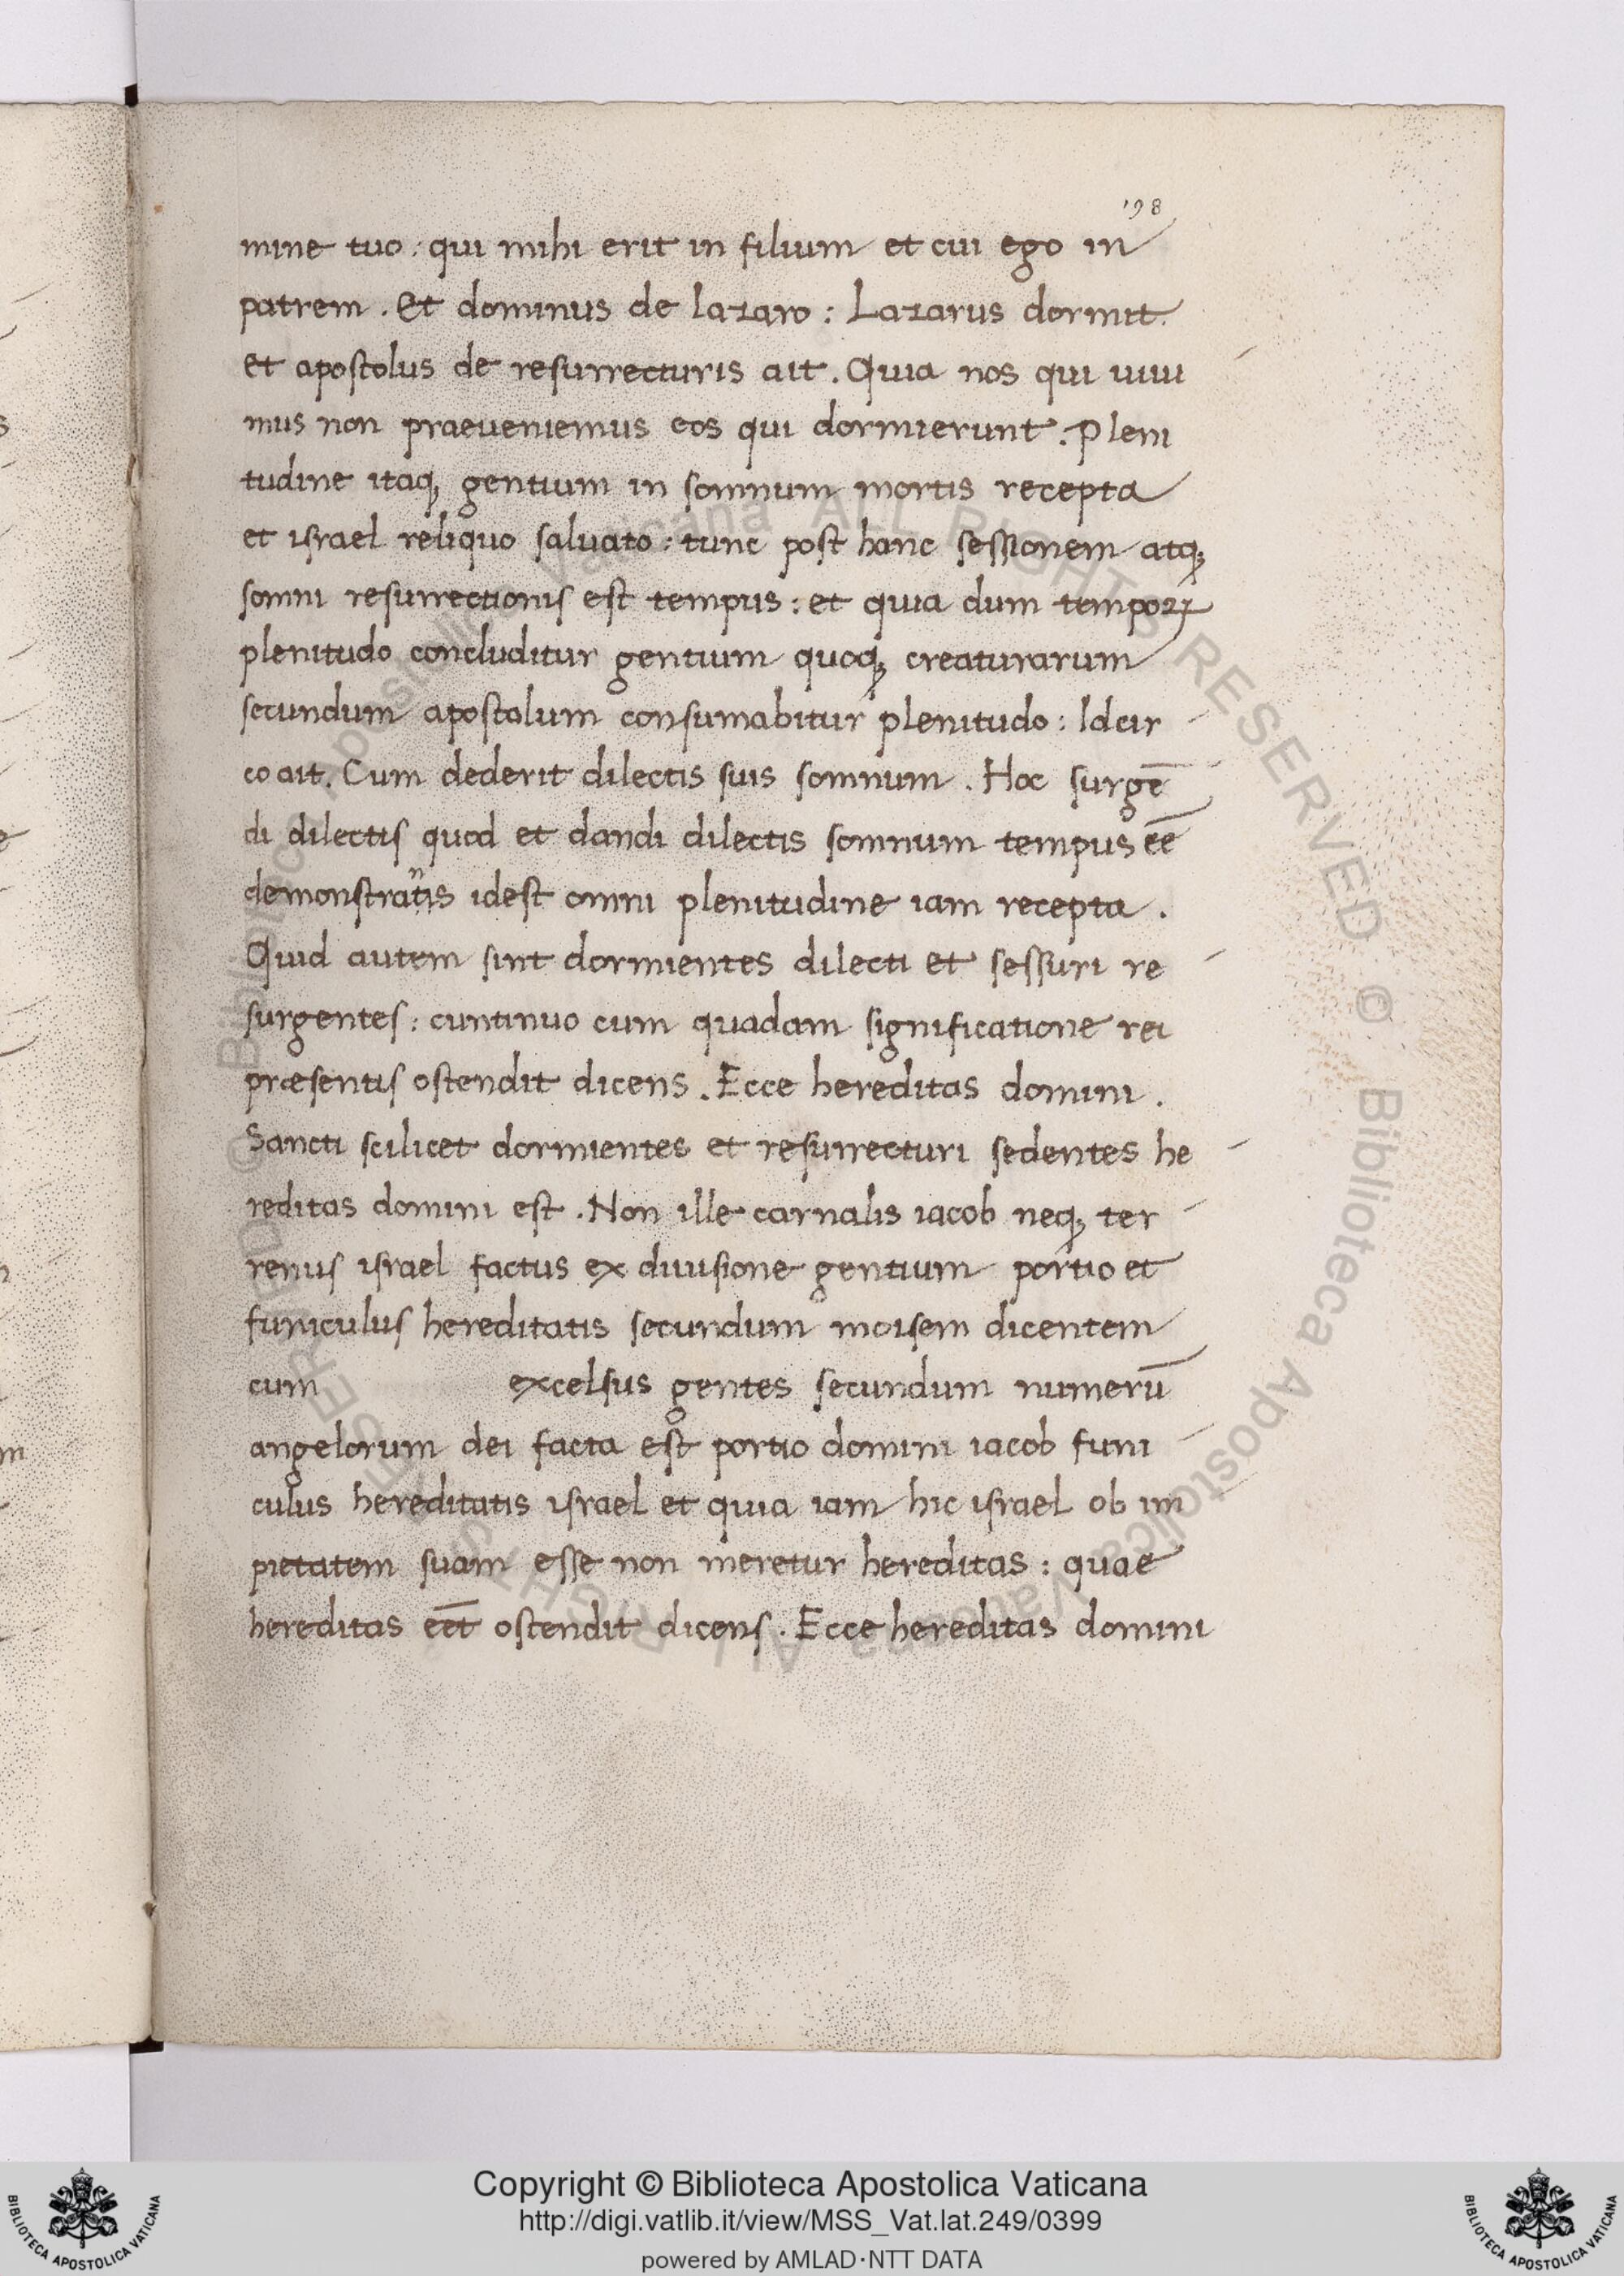 198
mine tuo : qui mihi erit in filium et cui ego in
patrem . Et dominus de lazaro : Lazarus dormit.
et apostolus de resurrecturis ait . Quia nos qui uiui
mus non praeueniemus eos qui dormierunt . Pleni
tudine itaq; gentium in somnum mortis recepta
et israel reliquo saluato : tunc post hanc sessionem atq;
somni resurrectionis est tempus : et quia dum tempoꝝ
plenitudo concluditur gentium quoq; creaturarum
secundum apostolum consumabitur plenitudo : Idcir
co ait. Cum dederit dilectis suis somnum . Hoc surgē
di dilectis quod et dandi dilectis somnum tempus eē
demonstratis idest omni plenitudine iam recepta .
Quid autem sint dormientes dilecti et sessuri re
surgentes : cuntinuo cum quadam significatione rei
præsentis ostendit dicens . Ecce hereditas domini .
Sancti scilicet dormientes et resurrecturi sedentes he
reditas domini est . Non ille carnalis iacob neq; ter
renus israel factus ex diuisione gentium portio et
funiculus hereditatis secundum moisem dicentem
cum excelsus gentes secundum numerū
angelorum dei facta est portio domini iacob funi
culus hereditatis israel et quia iam hic israel ob im
pietatem suam esse non meretur hereditas : quae
hereditas eēt ostendit dicens . Ecce hereditas domini
Copyright © Biblioteca Apostolica Vaticana
http://digi.vatlib.it/view/MSS_Vat.lat.249/0399
powered by AMLAD·NTT DATA